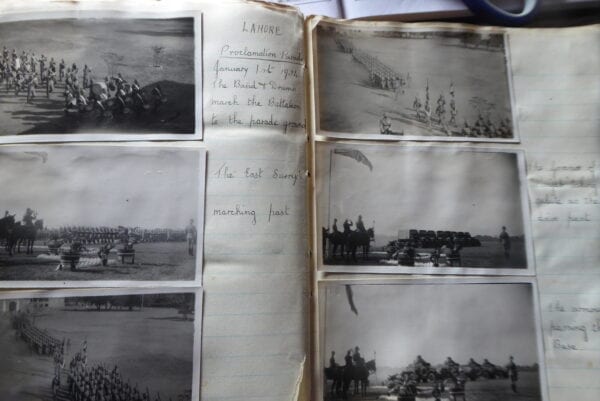 LAHORE
Proclamation Parade
January 1st
The Band & Drums
march the Battalion
to the parade ground
The East Surrey's
marching past
as the
past
the armou
passing th
Base